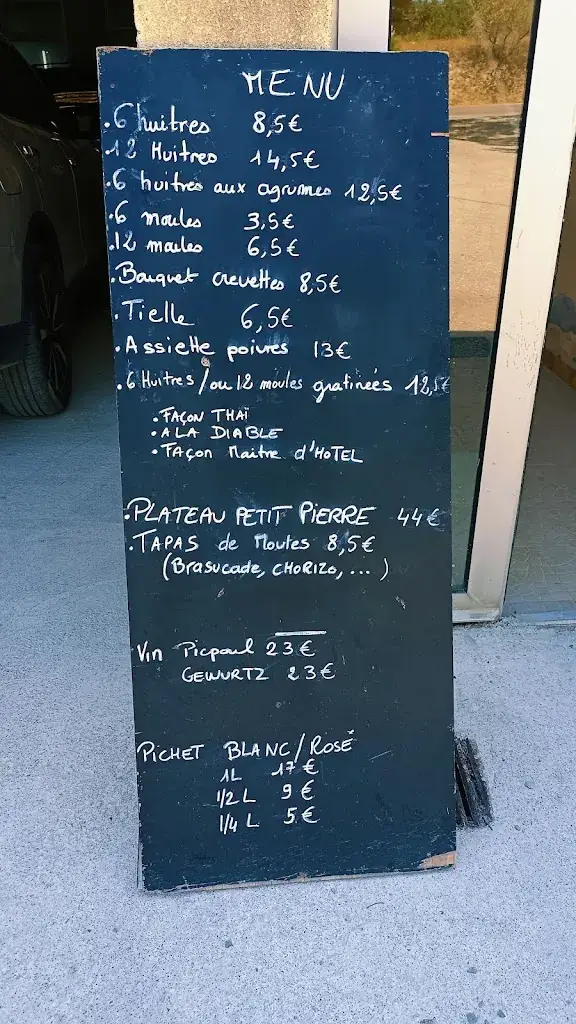 MENU
.6 huitres 8,5€
.12 Huitres 14,5€
.6 huitres aux agrumes 12,5€
.6 moules 3,5€
.12 moules 6,5€
.Bouquet crevettes 8,5€
.Tielle 6,5€
.Assiette poivres 13€
.6 Huîtres/ou 12 moules gratinées 12,5€
.FAÇON THAÏ
.A LA DIABLE
.FAÇON Maitre d'HOTEL
.PLATEAU PETIT PIERRE 44€
.TAPAS de Moules 8,5€
(Brasucade, CHORIZO, ...)
Vin Picpoul 23€
GEWURTZ 23€
PICHET BLANC/ROSÉ
1L 17€
1/2 L 9€
1/4 L 5€